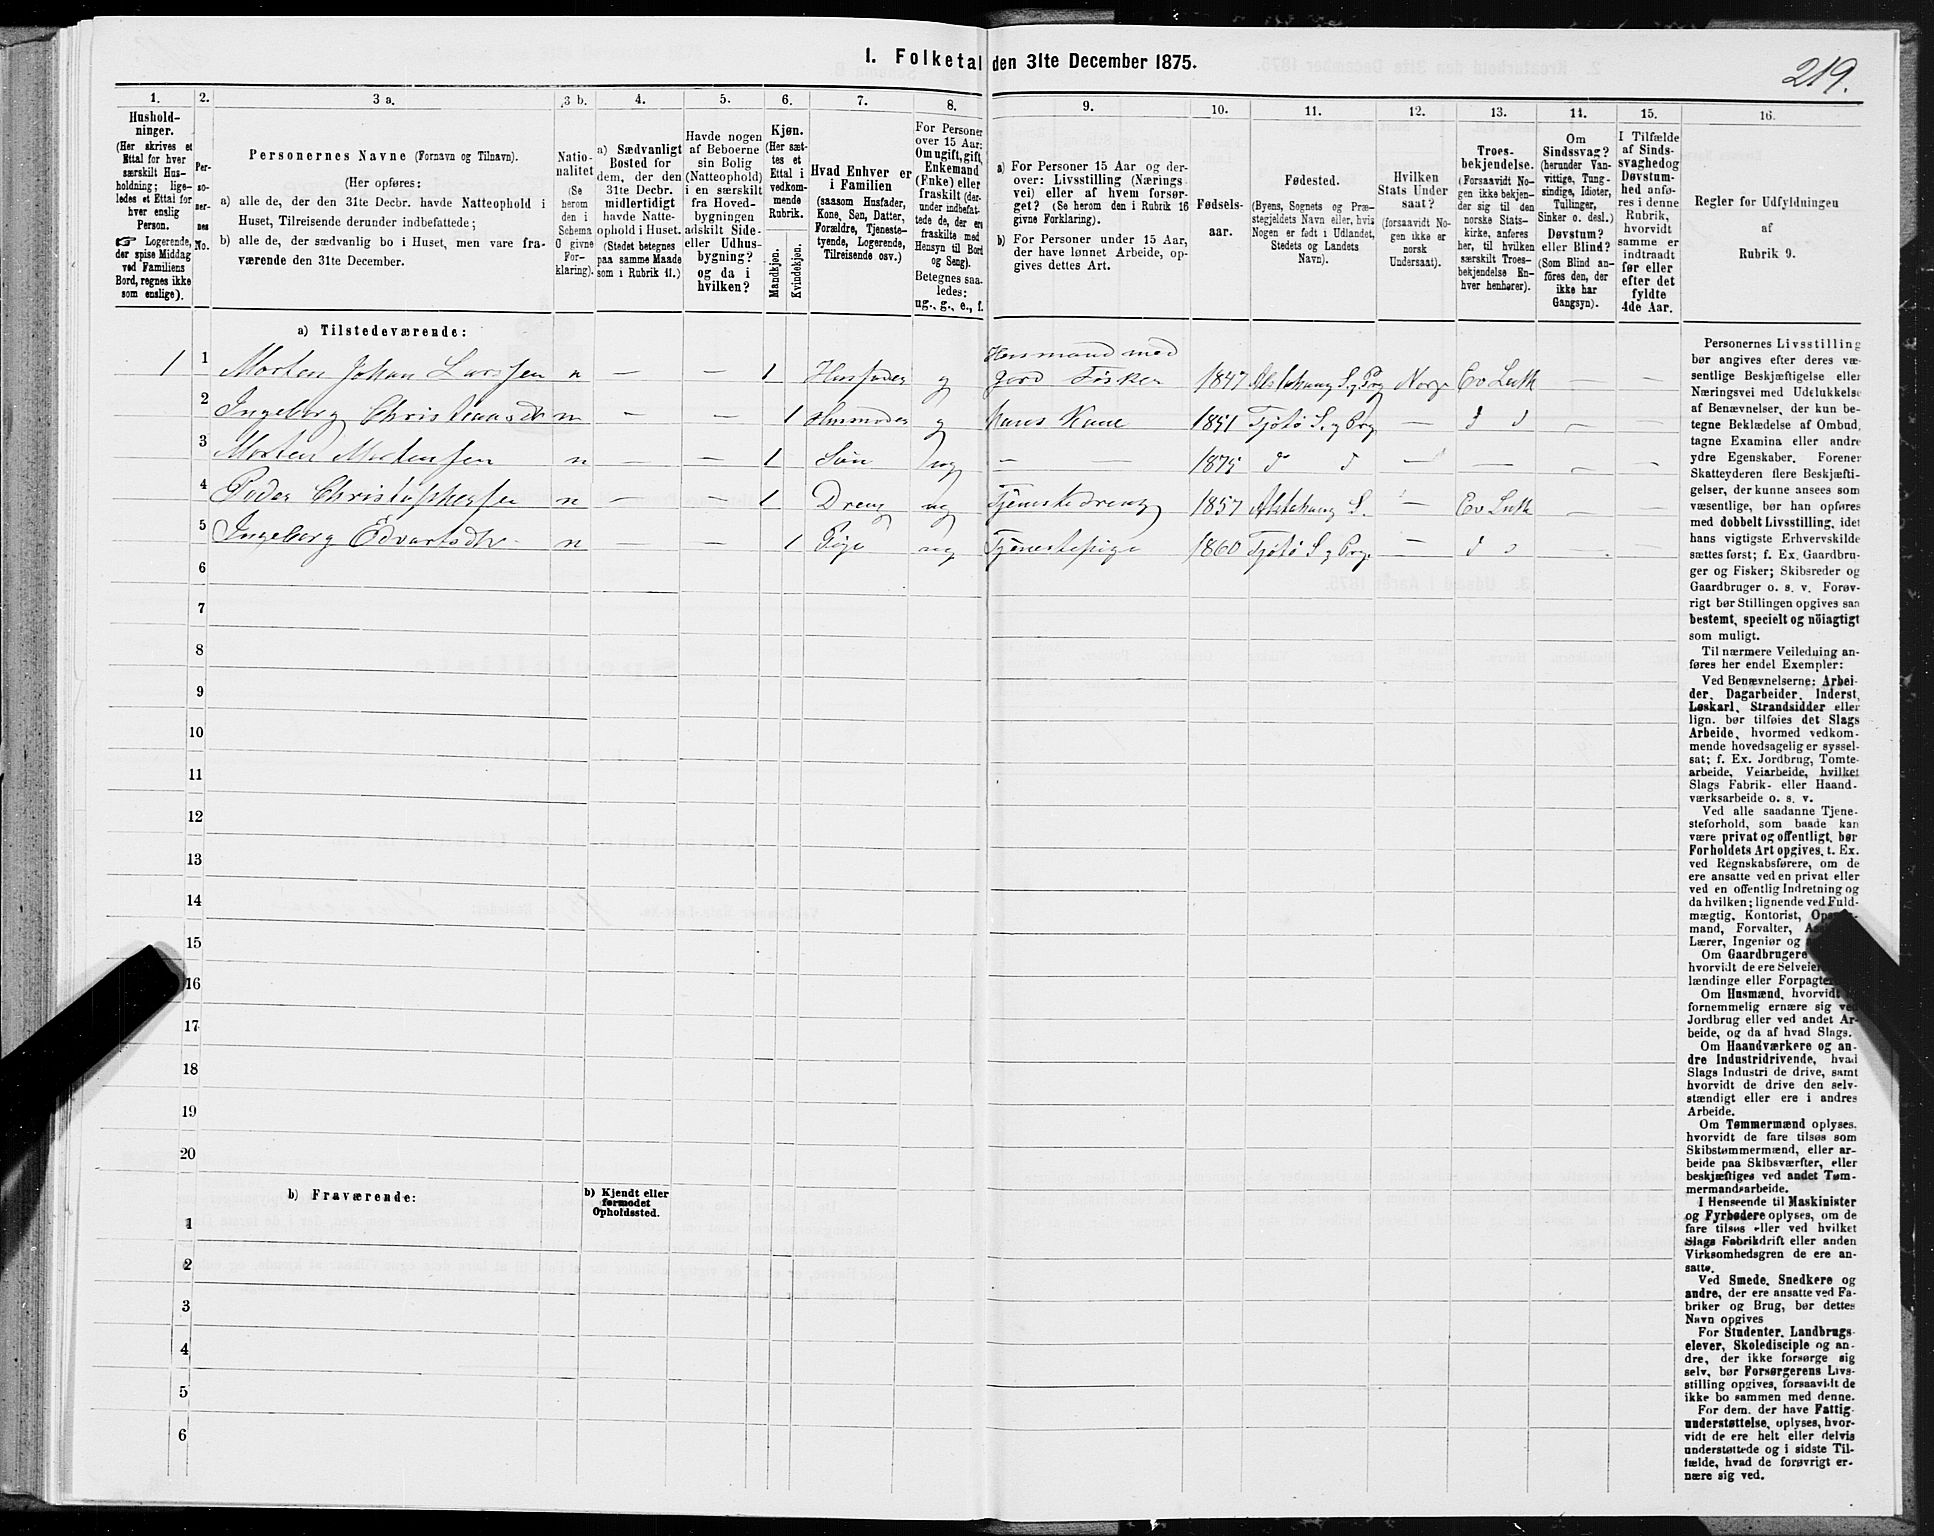 219.
1. Folketal den 31te December 1875.
1. 2. 3 a. 3 b. 4. 5. 6. 7. 8. 9. 10. 11. 12. 13. 14. 15. 16.
Hushold-
ninger.
(Her skrives et
Ettal for hver
særskilt Hus-
holdning; lige-
ledes et Ettal for
hver enslig
Person.
☞ Logerende,
der spise Middag
ved Familiens
Bord, regnes ikke
som enslige).
Per-
so-
ner-
nes
No.
Personernes Navne (Fornavn og Tilnavn).
(Her opføres:
a) alle de, der den 31te Decbr. havde Natteophold i
Huset, Tilreisende derunder indbefattede;
b) alle de, der sædvanlig bo i Huset, men vare fra-
værende den 31te December.
Natio-
nalitet
(Se
herom
den i
Schema
O givne
For-
klaring).
a) Sædvanligt
Bosted for
dem, der den
31te Decbr.
midlertidigt
havde Natte-
ophold i Huset.
(Stedet betegnes
paa samme Maade
som i Rubrik 11.)
Havde nogen
af Beboerne
sin Bolig
(Natteophold)
i en særskilt
fra Hoved-
bygningen
adskilt Side-
eller Udhus-
bygning?
og da i
hvilken?
Kjøn.
(Her sæt-
tes et
Ettal i
vedkom-
mende
Rubrik.
Mandkjøn.
Kvindekjøn.
Hvad Enhver er
i Familien
(saasom Husfader,
Kone, Søn, Datter,
Forældre, Tjeneste-
tyende, Logerende,
Tilreisende osv.)
For Personer
over 15 Aar:
Om ugift, gift,
Enkemand
(Enke) eller
fraskilt (der-
under indbefat-
tede de, der ere
fraskilte med
Hensyn til Bord
og Seng).
Betegnes saa-
ledes:
ug., g., e., f.
a) For Personer 15 Aar og der-
over: Livsstilling (Nærings-
vei) eller af hvem forsør-
get? (Se herom den i Rubrik 16
givne Forklaring).
b) For Personer under 15 Aar,
der have lønnet Arbeide, op-
gives dettes Art.
Fødsels-
aar.
Fødested.
(Byens, Sognets og Præ-
stegjeldets Navn eller, hvis
Nogen er født i Udlandet,
Stedets og Landets
Navn).
Hvilken
Stats Under-
saat?
(forsaavidt No-
gen ikke er
norsk
Undersaat).
Troes-
bekjendelse.
(Forsaavidt No-
gen ikke bekjen-
der sig til den
norske Stats-
kirke, anføres
her, til hvilken
særskilt Troes-
bekjendelse En-
hver henhører).
Om
Sindssvag?
(herunder Van-
vittige, Tung-
sindige, Idioter,
Tullinger,
Sinker o. desl.)
Døvstum?
eller Blind?
(Som Blind an-
føres den, der
ikke har
Gangsyn).
I Tilfælde
af Sinds-
svaghed og
Døvstum-
hed anfø-
res i denne
Rubrik,
hvorvidt
samme er
indtraadt
før eller
efter det
fyldte
4de Aar.
Regler før Udfyldningen
af
Rubrik 9.
a) Tilstedeværende:
1 1 Morten Johan Larssen n — — 1 Husfader g Husmand med Jord Fisker 1847 Alstahaug S. g Prg Norge Ev Luth — —
2 Ingeborg Christiansdtr n — — 1 Husmoder g Hans Kone 1851 Tjøtø S. g Prg. — d d — —
3 Morten Mortensen n — — 1 Søn ug — — 1875 d d — — — —
4 Peder Christophersen n — — 1 Dreng ug Tjenestedreng 1857 Alstahaug S. — Ev Luth — —
5 Ingeborg Edvartsdtr n — — 1 Pige ug Tjenestepige 1860 Tjøtø S g Prg. — d d — —
6
7
8
9
10
11
12
13
14
15
16
17
18
19
20
b) Fraværende:
b) Kjendt eller
formodet
Opholdssted.
1
2
3
4
5
6
Personernes Livsstilling
bør angives efter deres væ-
sentlige Beskjæftigelse eller
Næringsvei med Udelukkelse
af Benævnelser, der kun be-
tegne Beklædelse af Ombud,
tagne Examina eller andre
ydre Egenskaber. Forener
Skatteyderen flere Beskjæfti-
gelser, der kunne ansees som
væsentlige, bør han opføres
med dobbelt Livsstilling, idet
hans vigtigste Erhvervskilde
sættes først; f. Ex. Gaardbru-
ger og Fisker; Skibsreder og
Gaardbruger o. s. v. Forøv-
rigt bør Stillingen opgives saa
bestemt, specielt og nöiagtigt
som muligt.
Til nærmere Veiledning an-
føres her endel Exempler:
Ved Benævnelserne: Arbei-
der, Dagarbeider, Inderst,
Løskarl, Strandsidder eller
lign. bør tilføies det Slags
Arbeide, hvormed vedkom-
mende hovedsagelig er syssel-
sat; f. Ex. Jordbrug, Tomte-
arbeide, Veiarbeide, hvilket
Slags Fabrik- eller Haand-
værksarbeide o. s. v.
Ved alle saadanne Tjene-
steforhold, som baade kan
være privat og offentligt, bør
Forholdets Art opgives, t. Ex.
ved Regnskabsførere, om de
ere ansatte ved en privat eller
ved en offentlig Indretning og
da hvilken; lignende ved Fuld-
mægtig, Kontorist,
mand, Forvalter,
Lærer, Ingeniør og
Om Gaardbrugere
hvorvidt de ere Selveiere,
lændinge eller Forpagtere.
Om Husmænd, hvorvidt
fornemmelig ernære sig ved
Jordbrug eller ved andet Ar-
beide, og da af hvad Slags.
Om Haandværkere og an-
dre Industridrivende, hvad
Slags Industri de drive, samt
hvorvidt de drive den selv-
stændigt eller ere i andres
Arbeide.
Om Tømmermænd oplyses,
hvorvidt de fare tilsøs som
Skibstømmermænd, eller ar-
beide paa Skibsværfter, eller
beskjæftiges ved andet Tøm-
mermandsarbeide.
I Henseende til Maskinister
og Fyrbødere oplyses, om de
fare tilsøs eller ved hvilket
Slags Fabrikdrift eller anden
Virksomhedsgren de ere an-
satte.
Ved Smede, Snedkere og
andre, der ere ansatte ved Fa-
briker og Brug, bør dettes
Navn opgives
For Studenter, Landbrugs-
elever, Skoledisciple og an-
dre, der ikke forsørge sig
selv, bør Forsørgerens Livs-
stilling opgives, forsaavidt de
ikke bo sammen med denne.
For dem, der have Fattig-
understøttelse, oplyses, hvor-
vidt de ere helt eller delvis
understøttede og i sidste Til-
fælde, hvad de forøvrigt er-
nære sig ved.